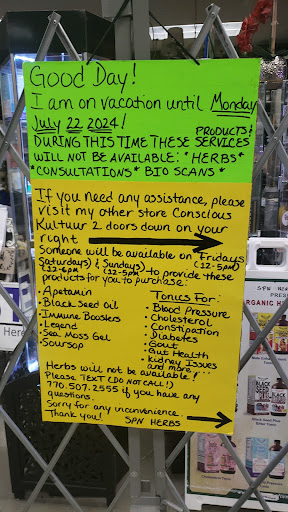 Good Day!
I am on vacation until Monday
July 22 2024!
PRODUCTS &
DURING THIS TIME THESE SERVICES
WILL NOT BE AVAILABLE: *HERBS*
*CONSULTATIONS* BIO SCANS *
If you need any assistance, please
visit my other store Conscious
Kultuur 2 doors down on your
right
Someone will be available on Fridays (12-5pm)
Saturdays) & Sundays) to provide these
(12-6pm) (12-5pm)
products for you to purchase:
• Apetamin
• Black Seed Oil
• Immune Boosters
• Legend
• Sea Moss Gel
• Soursop
Tonics For:
• Blood Pressure
• Cholesterol
• Constipation
• Diabetes
• Gout
• Gut Health
• Kidney Issues
and more...
Herbs will not be available!
Please TEXT (DO NOT CALL!)
770.507.2555 if you have any
questions.
Sorry for any inconvenience.
Thank you! SPN HERBS
Here
ORGANIC H
BLACK